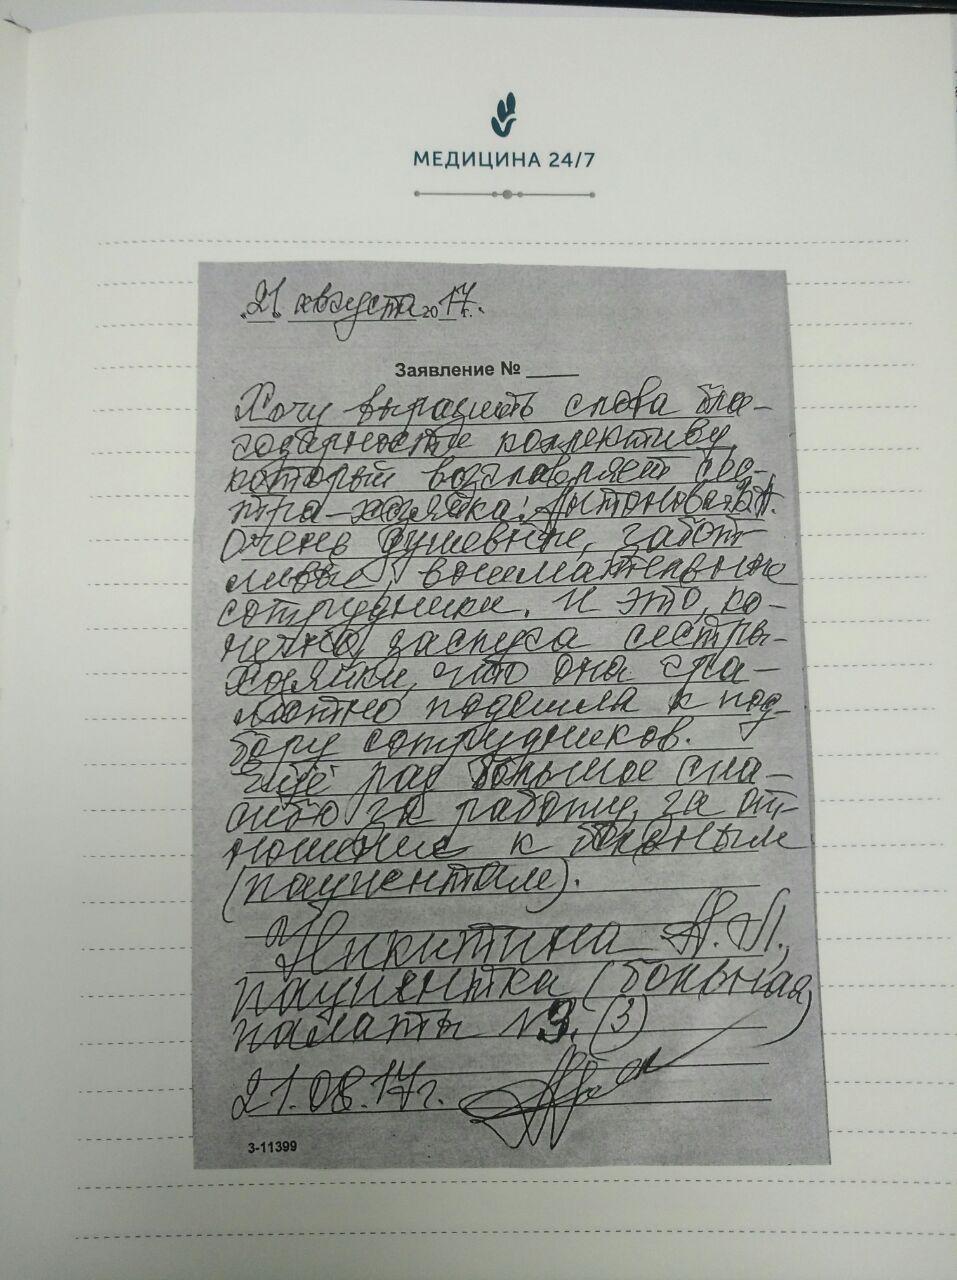 МЕДИЦИНА 24/7
21 августа 2017г.
Заявление №
Хочу выразить слова бла-
годарности коллективу,
который возглавляет сес-
тра-хозяйка: Антонова
Очень душевные, забот-
ливые, внимательные
сотрудники. И это, ко-
нечно, заслуга сестры-
хозяйки, что она гра-
мотно подошла к под-
бору сотрудников.
Ещё раз большое спа-
сибо за работу, за от-
ношение к больным
(пациентам).
Никитина А.П.,
пациентка (больная)
палаты №9. (3)
21.08.17г.
3-11399